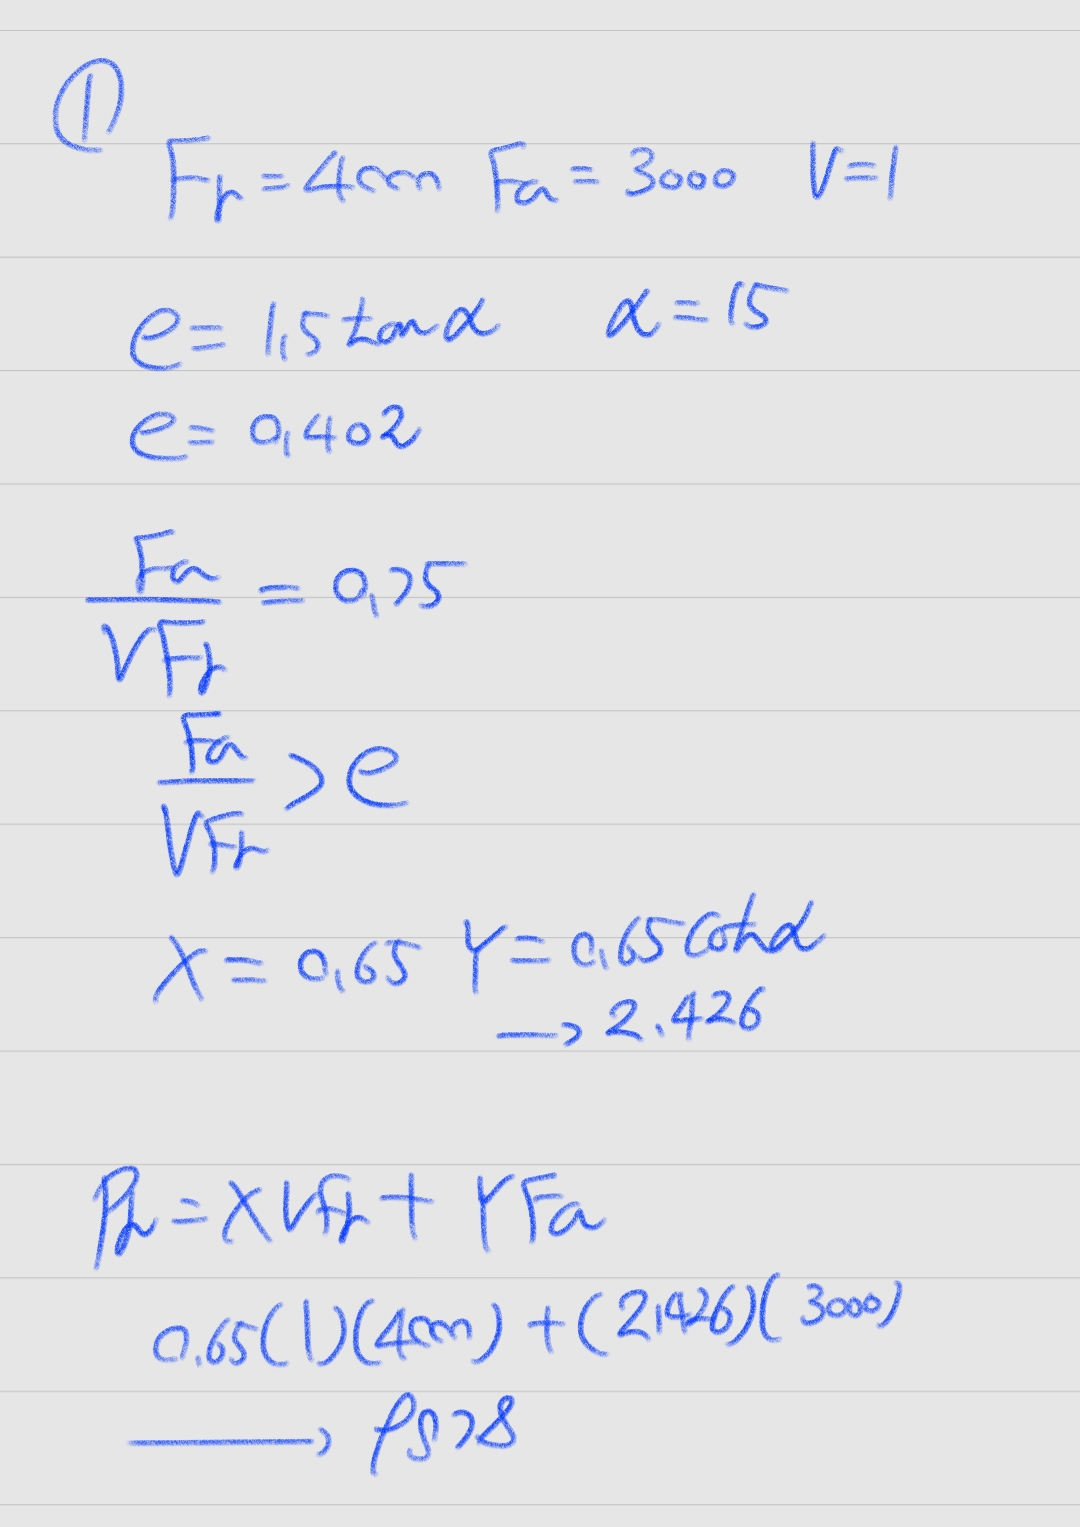 ①
Fr = 4000 Fa = 3000 V=1
e = 1,5 tan α α = 15
e = 0,402
Fa/VFr = 0,75
Fa/VFr > e
X = 0,65 Y = 0,65 Cot α
→ 2.426
Pr = XVFr + YFa
0.65(1)(4000) + (2,426)(3000)
→ 9878